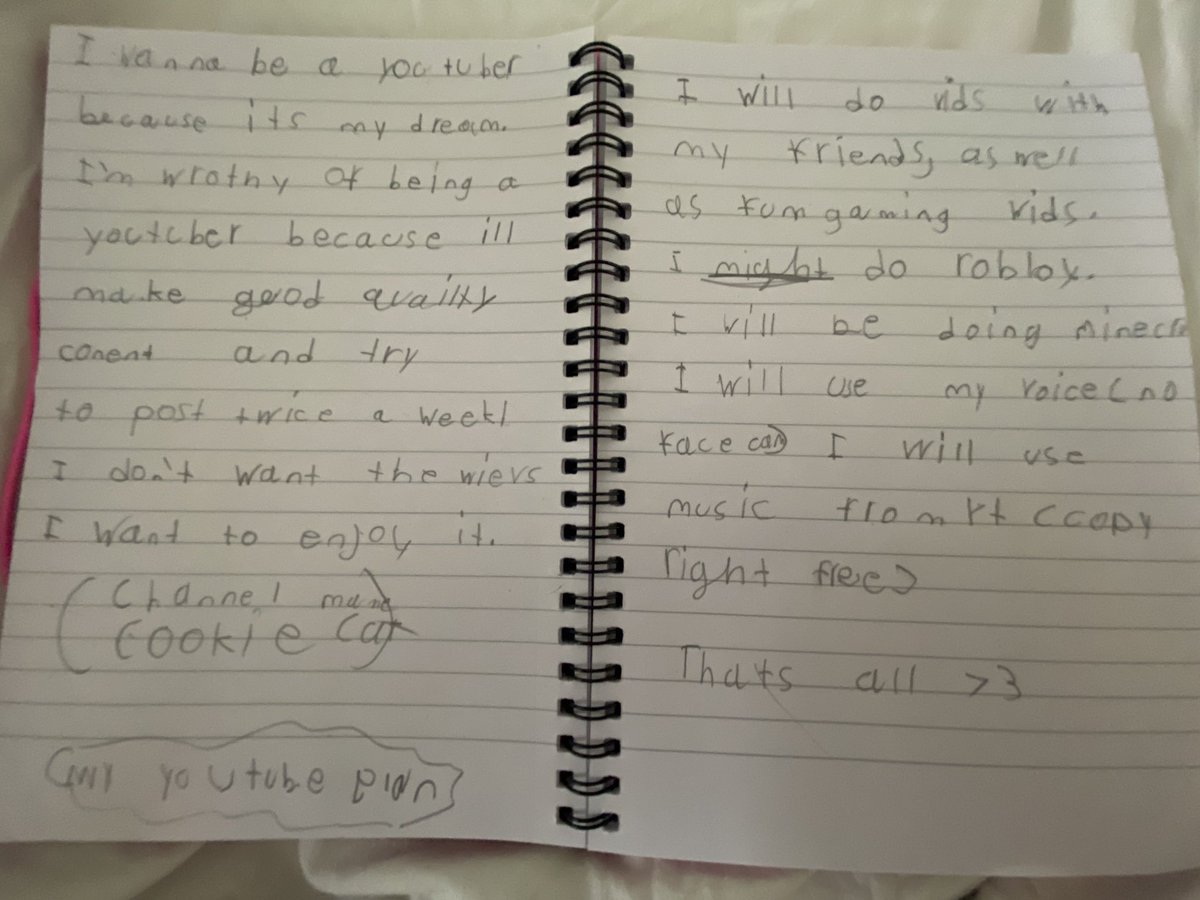 I wanna be a youtuber
because its my dream.
I'm wrothy of being a
youtuber because ill
make good quailty
conent and try
to post twice a week!
I don't want the wievs
I want to enjoy it.
(Channel name
Cookie Cat)
(my youtube plan)
I will do vids with
my friends, as well
as fun gaming vids.
I might do roblox.
I will be doing minecr
I will use my voice (no
face cam) I will use
music from yt (copy
right free)
Thats all >3